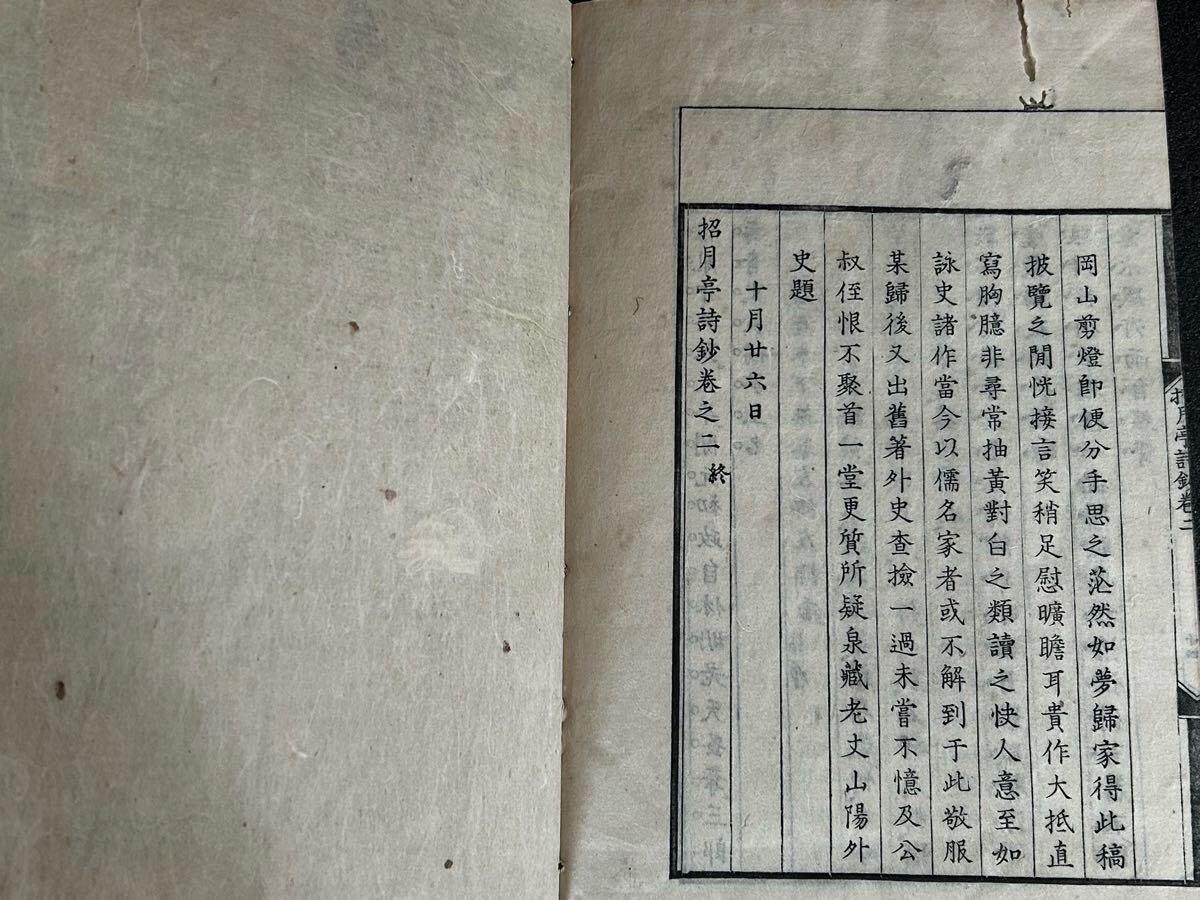 岡山剪燈卽便分手思之茫然如夢歸家得此稿
披覽之閒恍接言笑稍足慰曠瞻耳貴作大抵直
寫胸臆非尋常抽黃對白之類讀之快人意至如
詠史諸作當今以儒名家者或不解到于此敬服
某歸後又出舊著外史查撿一過未嘗不憶及公
叔侄恨不聚首一堂更質所疑泉藏老丈山陽外
史題
十月廿六日
招月亭詩鈔卷之二終
招月亭詩鈔卷二